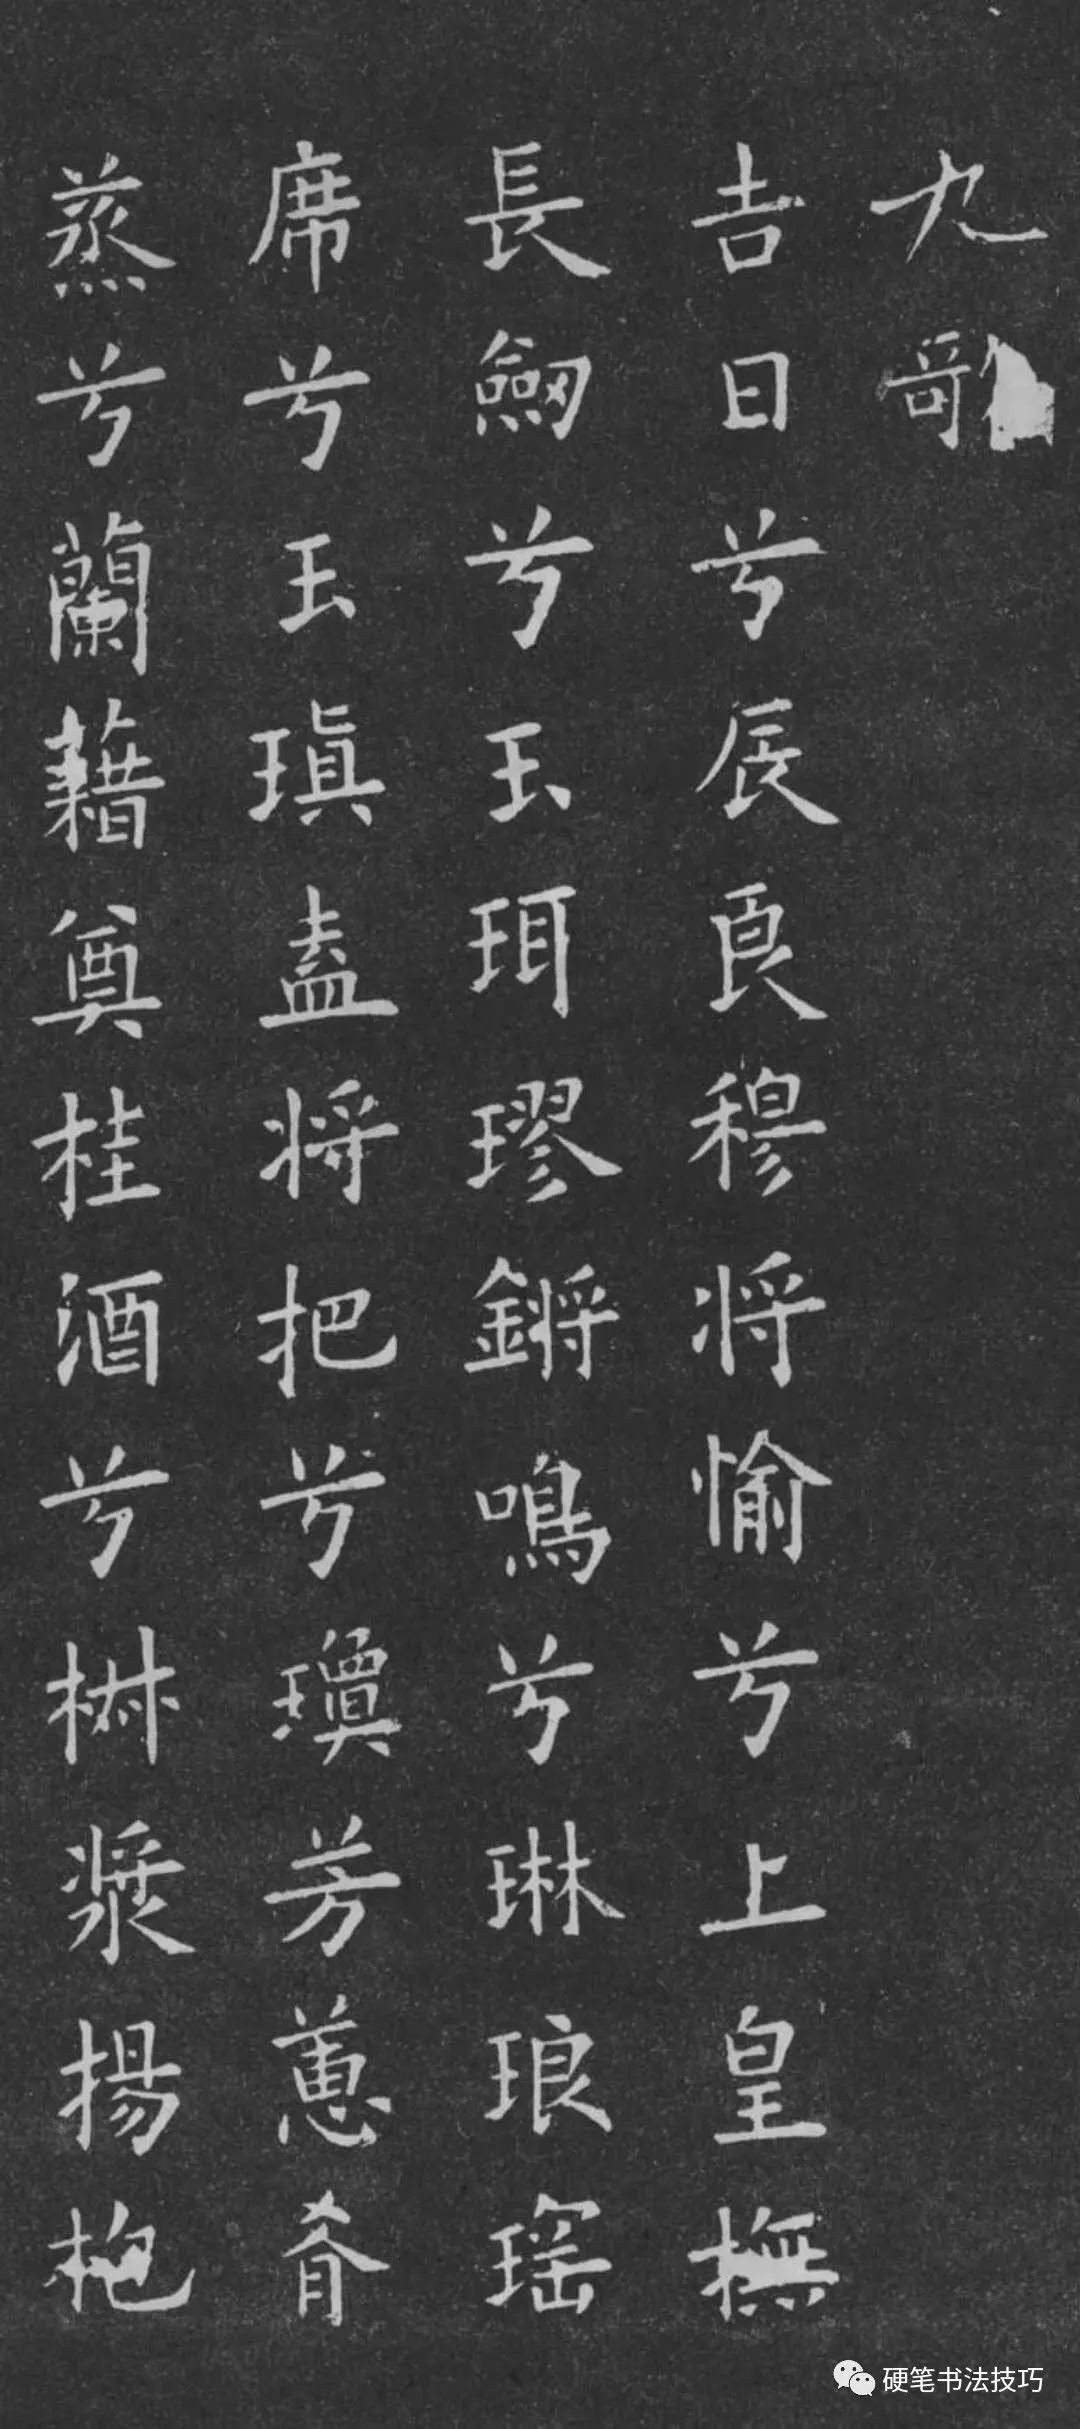 九歌
吉日兮辰良穆将愉兮上皇撫
長劒兮玉珥璆鏘鳴兮琳琅瑶
席兮玉瑱盍将把兮瓊芳蕙肴
蒸兮蘭藉奠桂酒兮椒漿揚枹
硬笔书法技巧